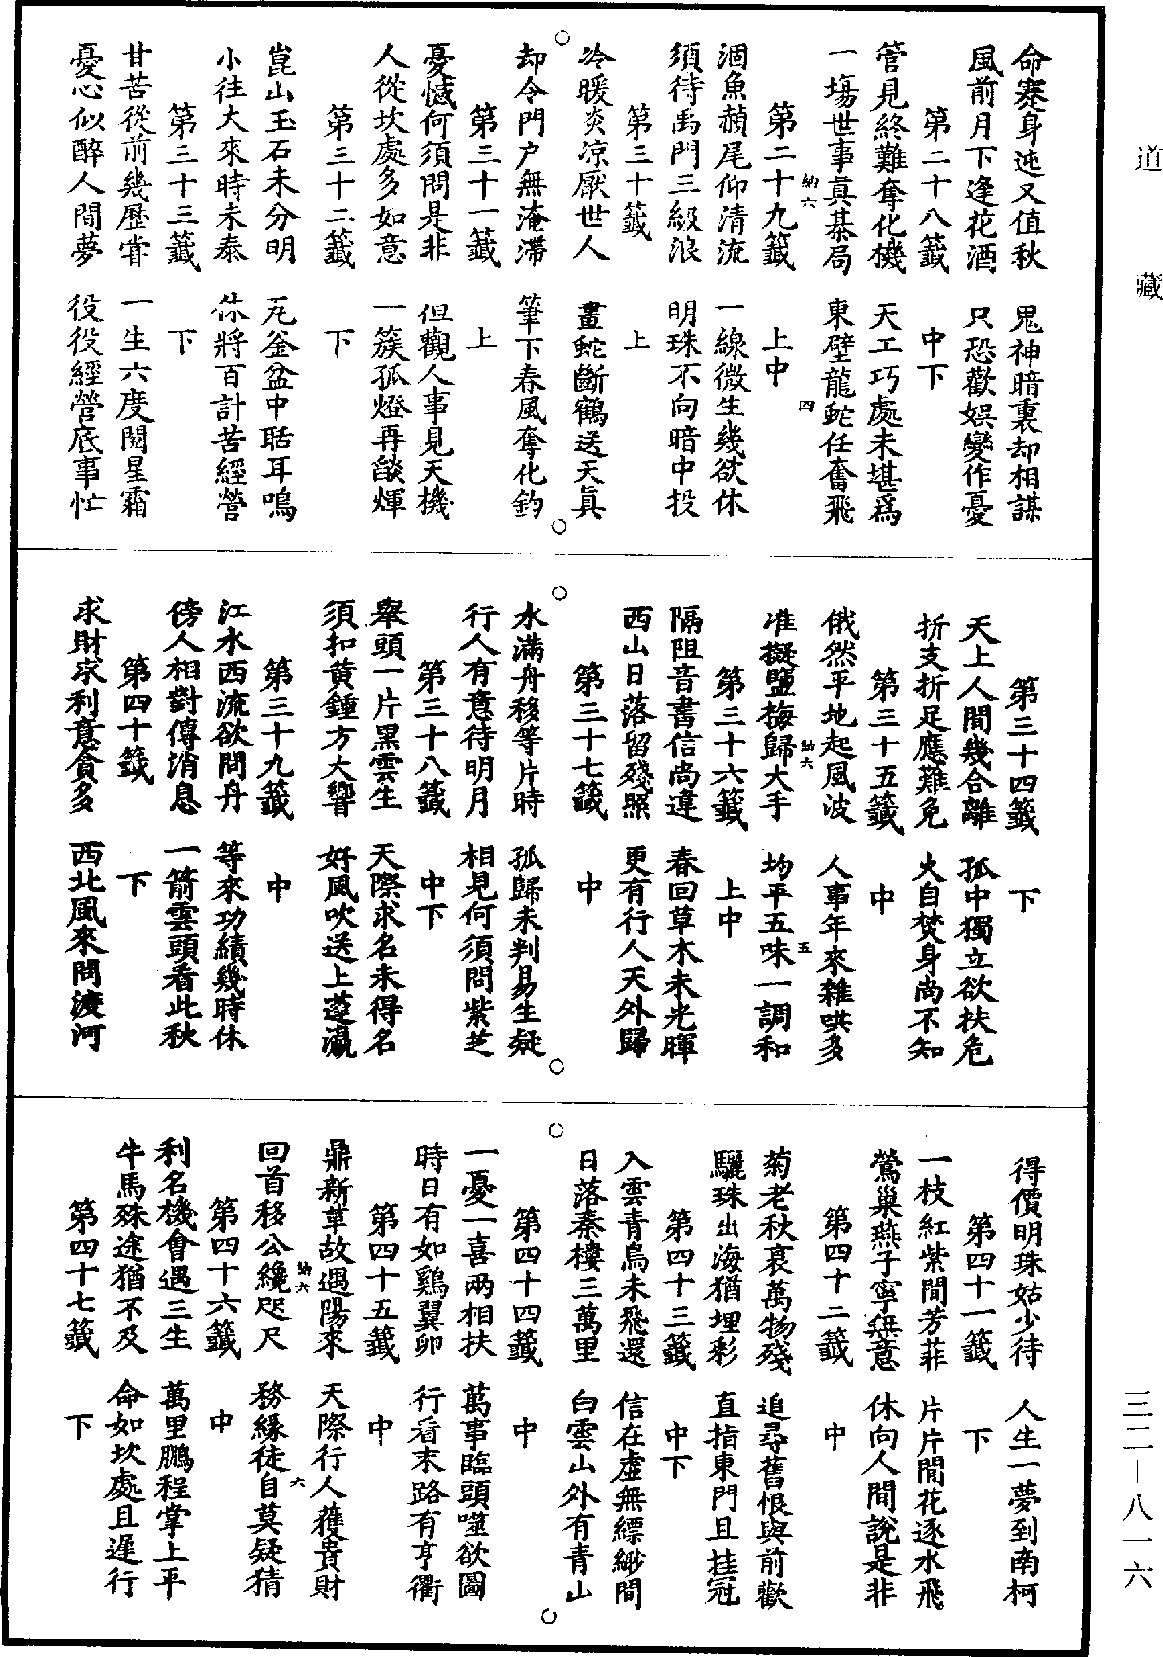 道藏
命蹇身迍又值秋　鬼神暗裏却相謀
風前月下逢花酒　只恐歡娛變作憂
第二十八籤　中下
管見終難奪化機　天工巧處未堪爲
一場世事真棊局　東壁龍蛇任奮飛
納六　四
第二十九籤　上中
涸魚赬尾仰清流　一線微生幾欲休
須待禹門三級浪　明珠不向暗中投
第三十籤　上
冷暖炎凉厭世人　畫蛇斷鶴送天真
却令門户無淹滯　筆下春風奪化鈞
第三十一籤　上
憂慽何須問是非　但觀人事見天機
人從坎處多如意　一簇孤燈再燄煇
第三十二籤　下
崑山玉石未分明　瓦釜盆中聒耳鳴
小往大來時未泰　休將百計苦經營
第三十三籤　下
甘苦從前幾歷甞　一生六度閱星霜
憂心似醉人間夢　役役經營底事忙
第三十四籤　下
天上人間幾合離　孤中獨立欲扶危
折支折足應難免　火自焚身尚不知
第三十五籤　中
俄然平地起風波　人事年來雜哄多
准擬鹽梅歸大手　均平五味一調和
納六　五
第三十六籤　上中
隔阻音書信尚違　春回草木未光暉
西山日落留殘照　更有行人天外歸
第三十七籤　中
水滿舟移等片時　孤歸未判易生疑
行人有意待明月　相見何須問紫芝
第三十八籤　中下
舉頭一片黑雲生　天際求名未得名
須扣黄鍾方大響　好風吹送上蓬瀛
第三十九籤　中
江水西流欲問丹　等來功績幾時休
傍人相對傳消息　一箭雲頭看此秋
第四十籤　下
求財求利意貪多　西北風來問渡河
得價明珠姑少待　人生一夢到南柯
第四十一籤　下
一枝紅紫間芳菲　片片閒花逐水飛
鶯巢燕子寧無意　休向人間說是非
第四十二籤　中
菊老秋哀萬物殘　追尋舊恨與前歡
驪珠出海猶埋彩　直指東門且挂冠
第四十三籤　中下
入雲青鳥未飛還　信在虛無縹緲間
日落秦樓三萬里　白雲山外有青山
第四十四籤　中
一憂一喜兩相扶　萬事臨頭噬欲圖
時日有如鷄翼卵　行看末路有亨衢
第四十五籤　中
鼎新革故遇陽來　天際行人獲貴財
回首移公纔咫尺　務緣徒自莫疑猜
納六　六
第四十六籤　中
利名機會遇三生　萬里鵬程掌上平
牛馬殊途猶不及　命如坎處且遲行
第四十七籤　下
三二—八一六